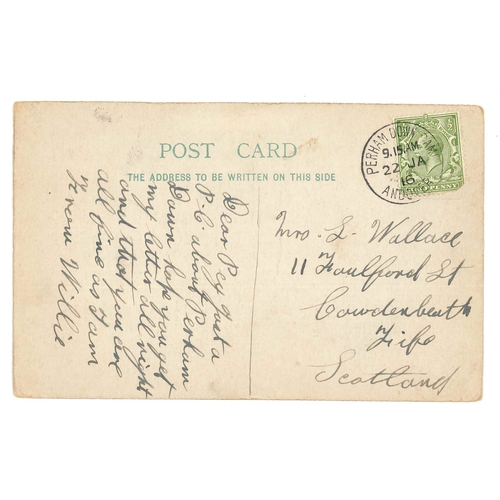 POST CARD
THE ADDRESS TO BE WRITTEN ON THIS SIDE
PERHAM DOWN CAMP
9.15 AM
22 JA
16
ANDOVER
PENNY
Dear Peg Just a
P.C. about Perham
Down hope you get
my letter all right
and that you are
all fine as I am
Willie
Mrs. L. Wallace
11 Foulford St
Cowdenbeath
Fife
Scotland